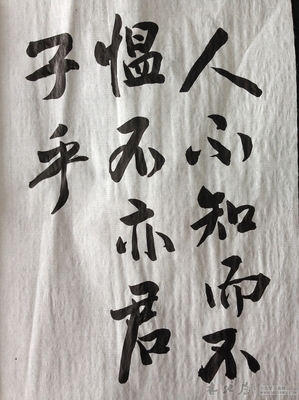 人不知而不
愠不亦君
子乎